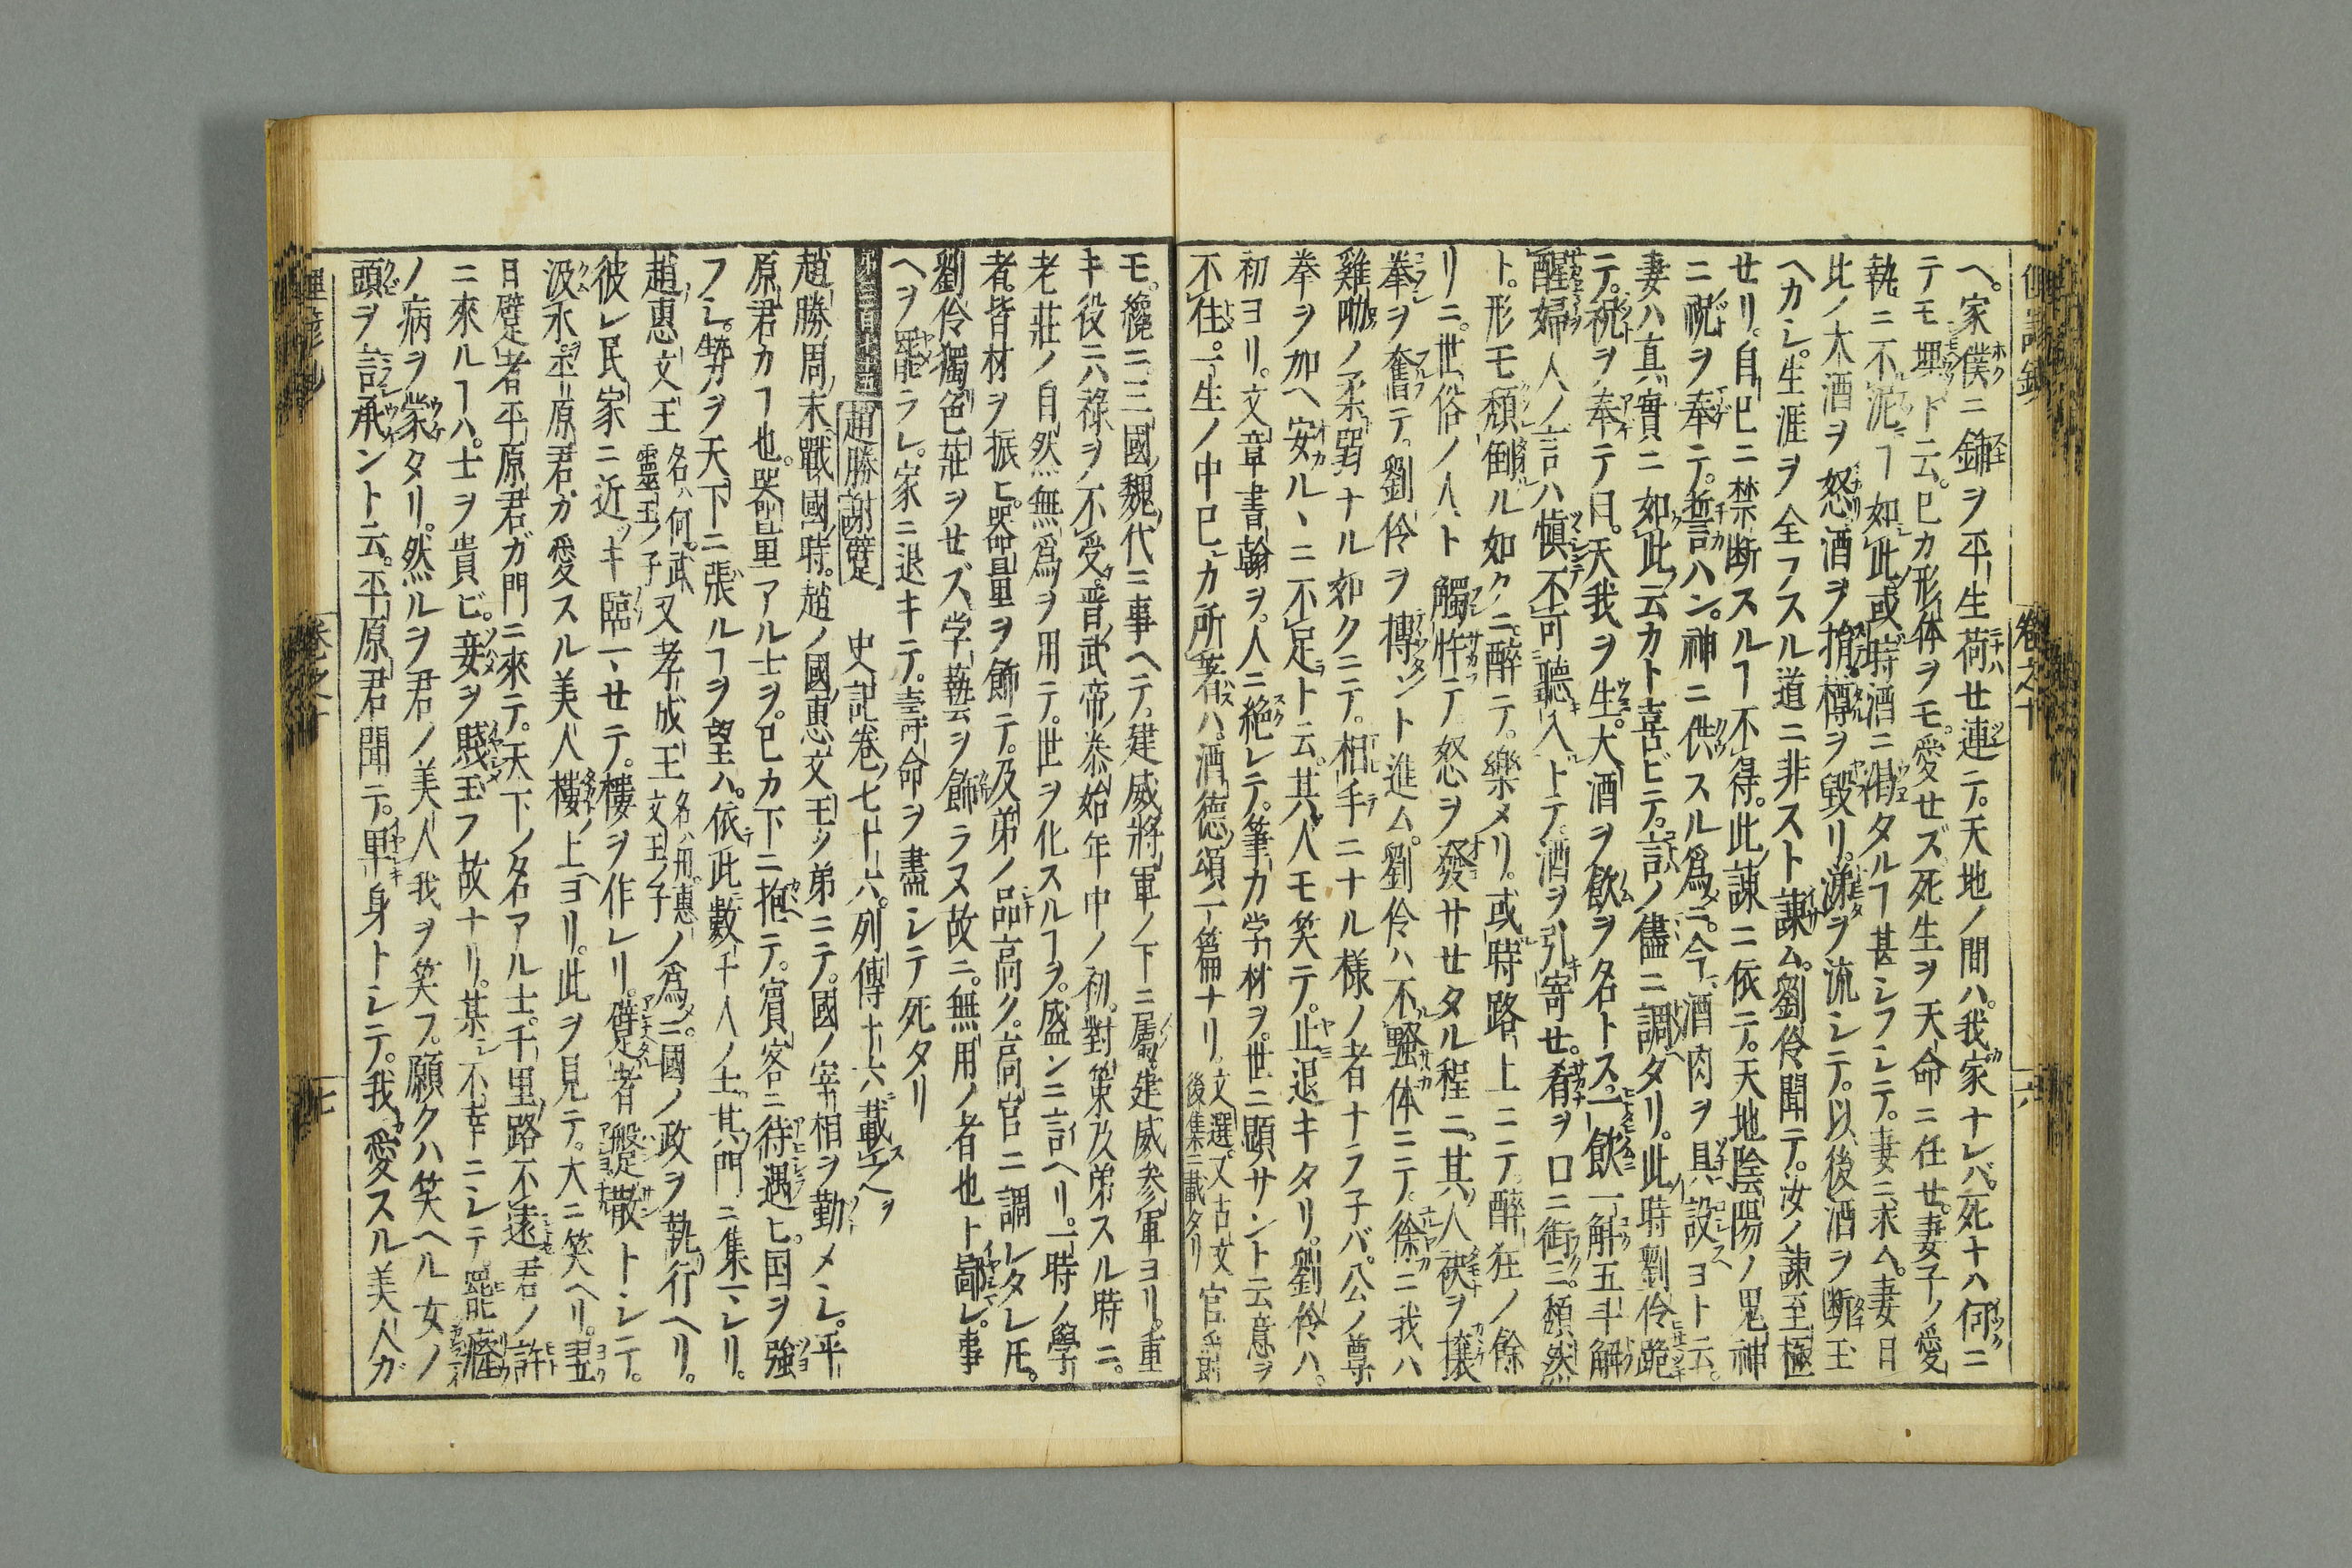 ヘ。家僕ニ鋤ヲ平生荷セ連テ。天地ノ間ハ。我家ナレバ。死ナハ何クニ
テモ埋ト云。巳カ形体ヲモ。愛セズ死生ヲ天命ニ任セ。妻子ノ愛
執ニ不泥ヿ如此或時酒ニ渇タルヿ甚シフシテ。妻ニ求ム。妻曰
此ノ大酒ヲ怒酒ヲ捐樽ヲ毀リ。涕ヲ流シテ。以後酒ヲ断玉
ヘカシ。生涯ヲ全フスル道ニ非スト諌ム。劉伶聞テ。汝ノ諌至極
セリ。自巳ニ禁断スルヿ不得。此諌ニ依テ。天地陰陽ノ鬼神
ニ祝ヲ奉テ。誓ハン。神ニ供スル為ニ。今酒肉ヲ具設ヨト云。
妻ハ真實ニ如此云カト喜ビテ。言ノ儘ニ調タリ。此時劉伶跪
テ。祝ヲ奉テ曰。天我ヲ生。大酒ヲ飲ヲ名トス。一飲一斛五斗解
醒婦人ノ言ハ慎不可聽入トテ酒ヲ引寄セ。肴ヲ口ニ銜ミ。頽然
ト。形モ頽倒ル如クニ醉テ。樂メリ。或時路上ニテ醉狂ノ餘
リニ。世俗ノ人ト觸忤テ怒ヲ發サセタル程ニ。其人袂ヲ攘
拳ヲ奮テ。劉伶ヲ搏ント進ム。劉伶ハ不騒体ニテ徐ニ我ハ
雞肋ノ柔弱ナル如クニテ。相手ニナル様ノ者ナラ子バ。公ノ尊
拳ヲ加ヘ安ル丶ニ不足ト云。其人モ笑テ。止退キタリ。劉伶ハ。
初ヨリ。文章書翰ヲ。人ニ絶レテ。筆力学材ヲ。世ニ顕サント云意ヲ
不住。一生ノ中巳カ所著ハ酒德頌一篇ナリ。文選又古文後集ニ載タリ 官
モ。纔ニ三國魏代ニ事ヘテ建威將軍ノ下ニ屬建威参軍ヨリ。重
キ役ニ六祿ヲ不受。晋武帝泰始年中ノ初。對策及弟スル時ニ。
老莊ノ自然無爲ヲ用テ。世ヲ化スルヿヲ。盛ンニ言ヘリ。一時ノ學
者。皆材ヲ振ヒ。器量ヲ飾テ。及弟ノ品高ク。高官ニ調レタレ𪜈。
劉伶獨色莊ヲセズ学藝ヲ飾ラヌ故ニ。無用ノ者也ト鄙レ。事
ヘヲ罷ラレ。家ニ退キテ。壽命ヲ盡シテ死タリ
趙勝謝躄 史記卷七十六。列傳十六載之ヲ
趙勝周末戰國時。趙ノ國惠文王ノ弟ニテ。國ノ宰相ヲ勤メシ。平
原君カヿ也。器量アル士ヲ。巳カ下ニ抱テ。賓客ニ待遇ヒ。国ヲ強
フシ。勢ヲ天下ニ張ルヿヲ望ハ。依此數千人ノ士。其門ニ集マレリ。
趙惠文王 名ハ何。武靈王ノ子 又孝成王 名ハ丹。惠文王ノ子 ノ爲ニ。國ノ政ヲ執行ヘリ。
彼レ民家ニ近ッキ臨マセテ。樓ヲ作レリ。躄者槃散トシテ。
汲水平原君カ愛スル美人樓ノ上ヨリ。此ヲ見テ。大ニ笑ヘリ。翌
日躄者平原君ガ門ニ來テ。天下ノ名アル士。千里路不遠君ノ許
ニ來ルヿハ。士ヲ貴ビ。妾ヲ賤玉フ故ナリ。某不幸ニシテ罷癃
ノ病ヲ蒙タリ。然ルヲ君ノ美人我ヲ笑フ。願クハ笑ヘル女ノ
頭ヲ請承ント云。平原君聞テ。卑身トシテ。我愛スル美人ガ
卷之十
六
卷之十
七